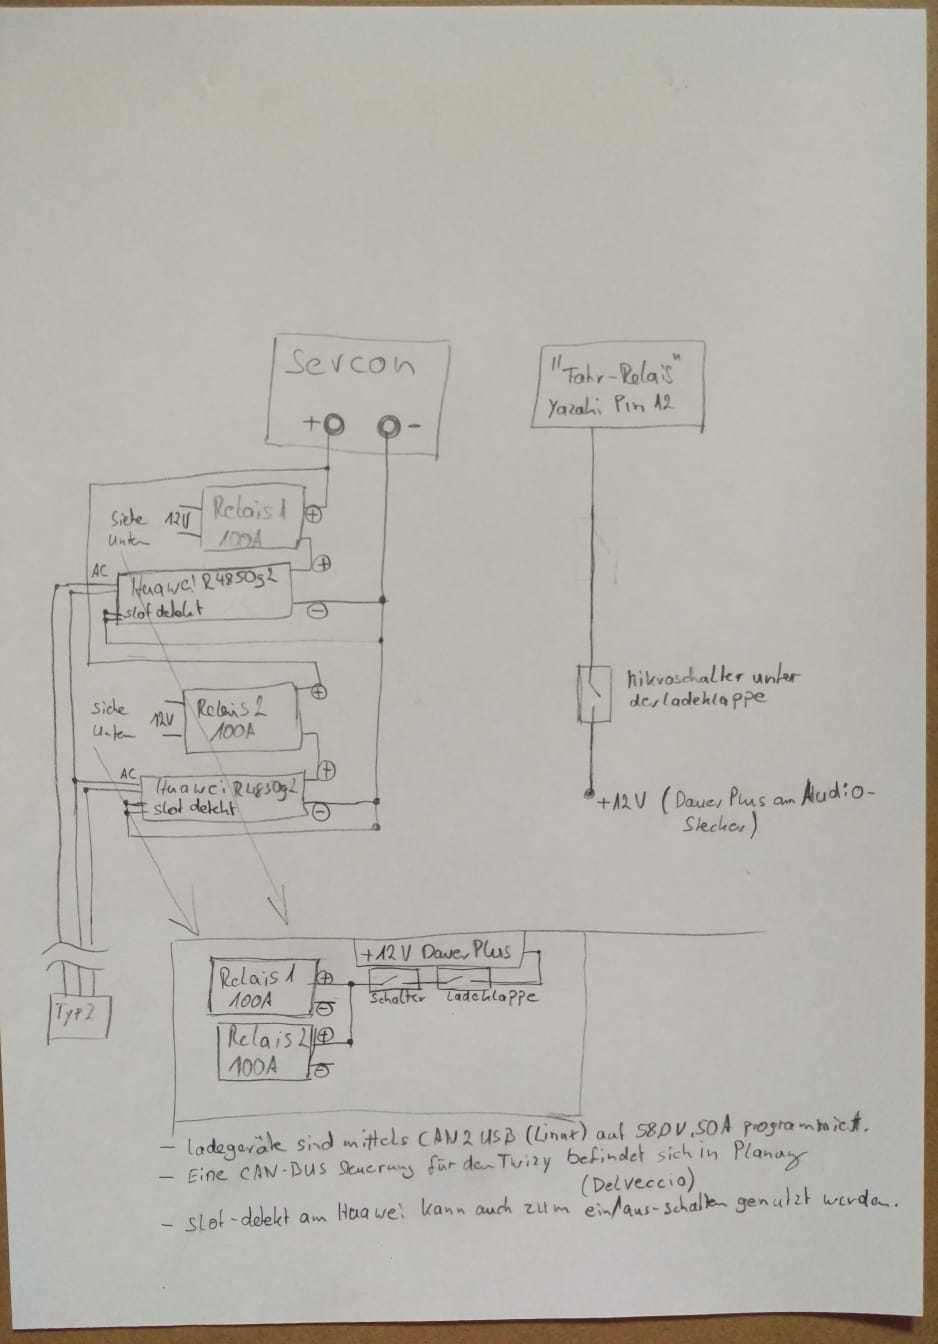 Sevcon
+ -
"Fahr-Relais"
Yazaki Pin A2
Siehe
unten
12V
Relais 1
100A
+
AC
Huawei R4850g2
slot detekt
+
-
Siehe
unten
12V
Relais 2
100A
+
AC
Huawei R4850g2
slot detekt
+
-
Mikroschalter unter
der Ladeklappe
+12V (Dauer Plus am Audio-
Stecker)
Typ 2
+12V Dauer Plus
Relais 1
100A
+
-
Schalter
Ladeklappe
Relais 2
100A
+
-
- Ladegeräte sind mittels CAN2USB (Linux) auf 58.0V, 50A programmiert.
- Eine CAN-BUS Steuerung für den Twizy befindet sich in Planung
(Delveccio)
- Slot-detekt am Huawei kann auch zum ein/aus-schalten genutzt werden.